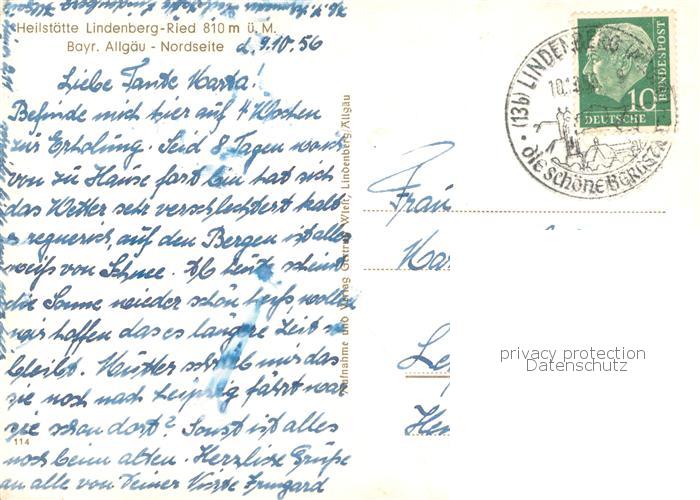 Heilstätte Lindenberg-Ried 810 m ü. M.
Bayr. Allgäu - Nordseite
d. 9.10.56
Liebe Tante Marta!
Befinde mich hier auf 4 Wochen
zur Erholung. Seid 8 Tagen wo ich
von zu Hause fort bin hat sich
das Wetter sehr verschlechtert kalt
u regnerich, auf den Bergen ist alles
weiß von Schnee. Ab heute scheint
die Sonne wieder schön heiß, wollen
wir hoffen das es längere Zeit so
bleibt. Mutter schrieb mir das
sie noch nach Leipzig fährt war
sie schon dort? Sonst ist alles
noch beim alten. Herzliche Grüße
an alle von Deiner Nichte Irmgard
114
Aufnahme und Verlag Wieli, Lindenberg/Allgäu
(13b) LINDENBERG
10.10.
die schöne Bergstadt
10
DEUTSCHE
BUNDESPOST
Frau
Mar
Le
Hen
privacy protection
Datenschutz